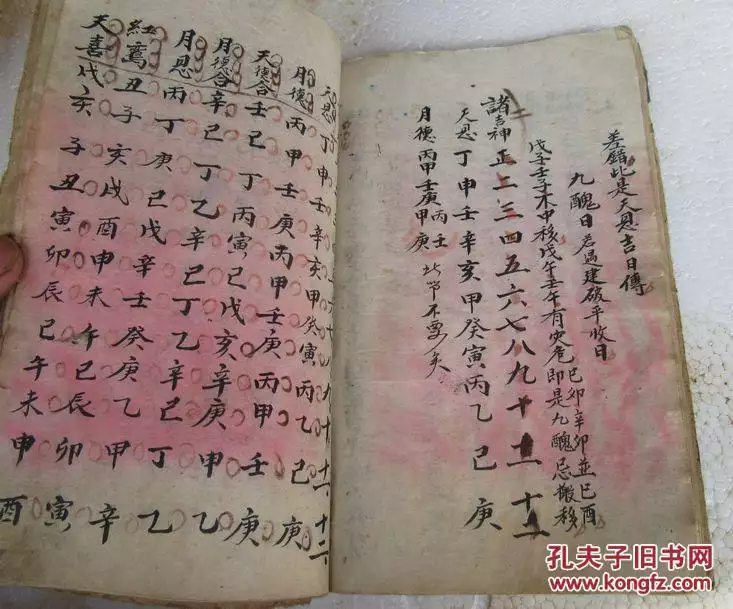 差錯此是天恩吉日傳
九醜日若為建破平收日
戊子壬子木中移戊午壬午有灾危
己卯辛卯並己酉
即是九醜忌搬移
諸吉神正二三四五六七八九十十一十二
天恩丁申壬辛亥甲癸寅丙乙巳庚
月德丙甲壬庚丙壬甲庚
不要矣
天恩丁申壬辛亥甲癸寅丙乙巳庚
月德丙甲壬庚丙甲壬庚丙甲壬庚
天德合壬巳丁丙寅己戊亥辛庚申乙
月德合辛己丁乙辛己丁乙辛己丁乙
月恩丙丁庚己戊辛壬癸庚乙甲辛
紅鸞丑子亥戌酉申未午巳辰卯寅
天喜戌亥子丑寅卯辰巳午未申酉
孔夫子旧书网
www.kongfz.com